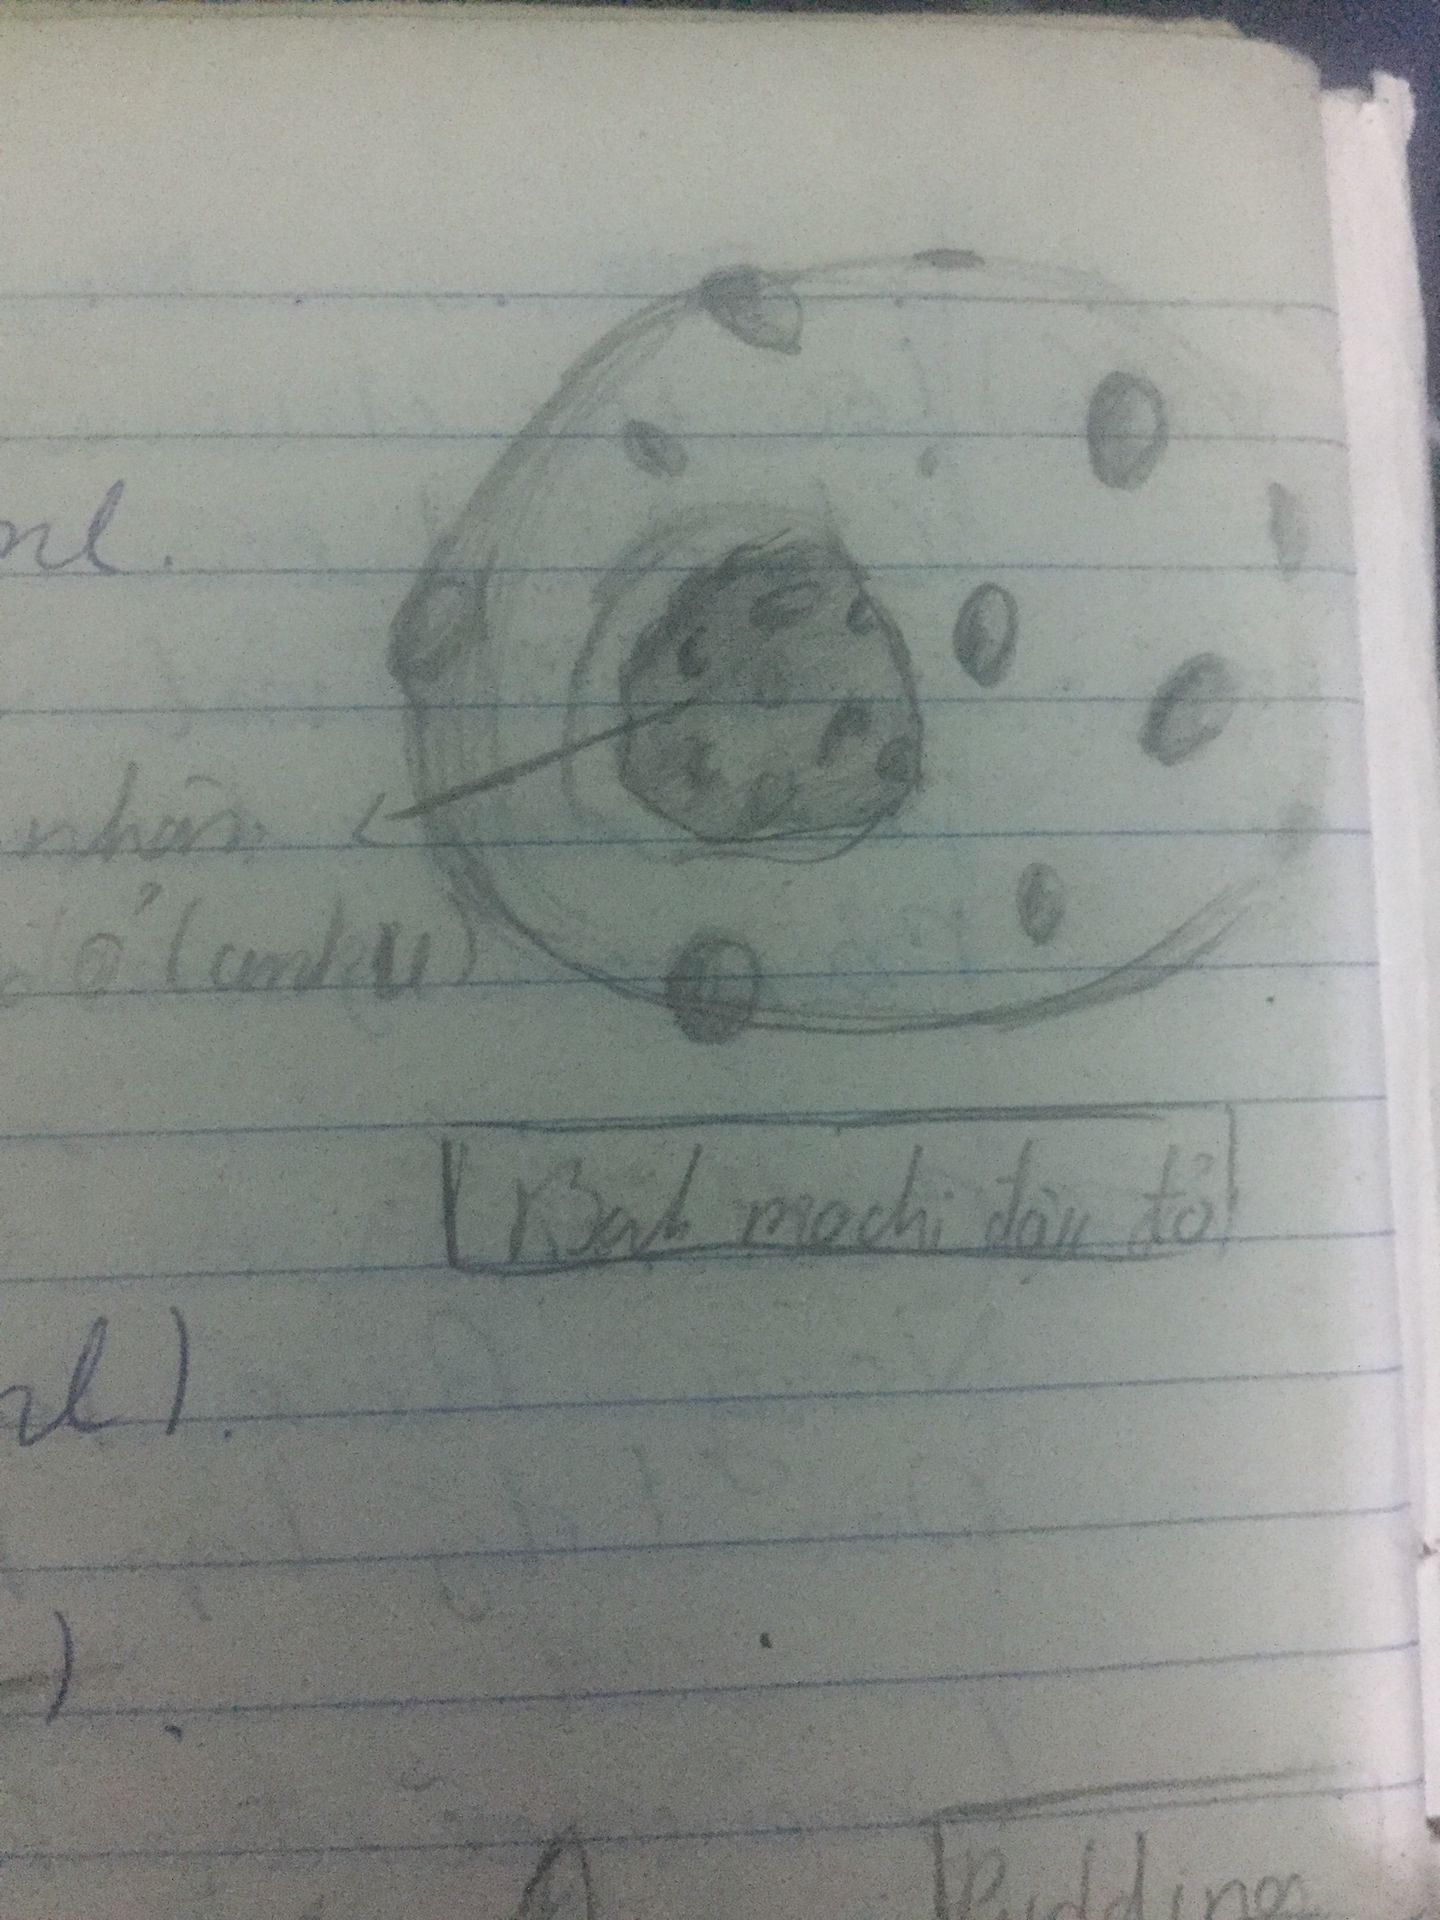 ml.
nhân
đỏ (
Bánh mochi đậu đỏ
ml).
).
Pudding